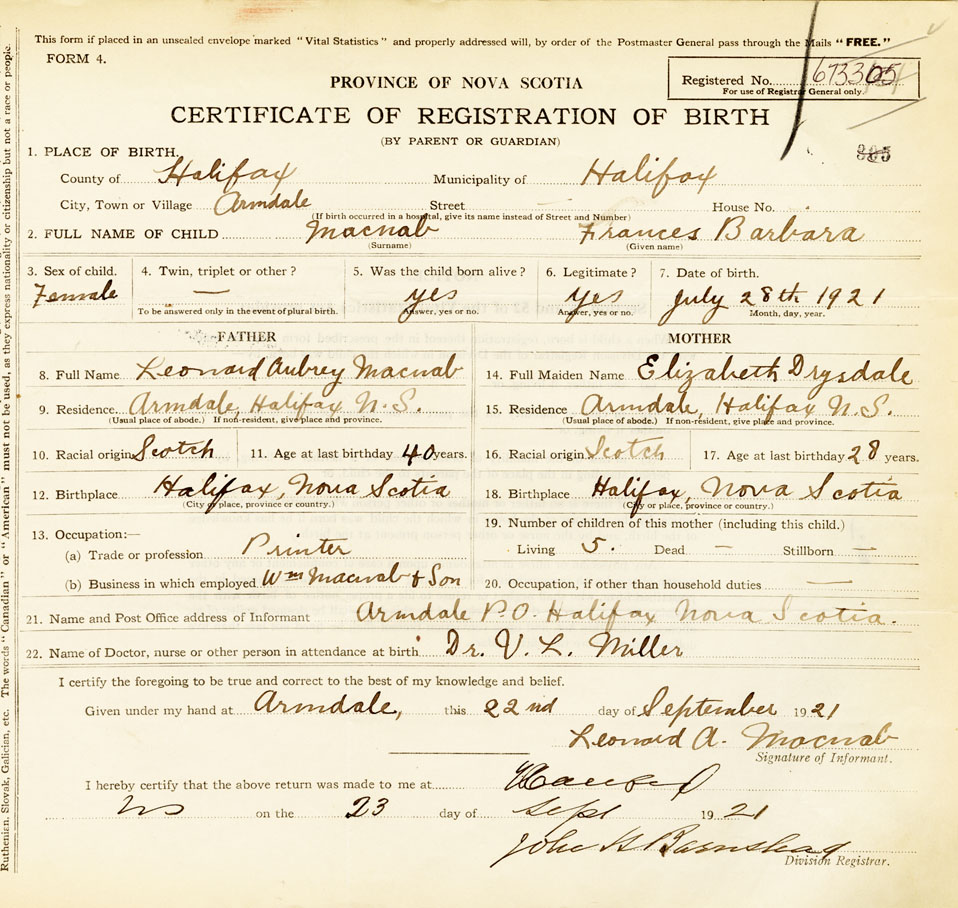 This form if placed in an unsealed envelope marked "Vital Statistics" and properly addressed will, by order of the Postmaster General pass through the Mails "FREE."
FORM 4.
PROVINCE OF NOVA SCOTIA
Registered No.
For use of Registrar General only.
CERTIFICATE OF REGISTRATION OF BIRTH
(BY PARENT OR GUARDIAN)
1. PLACE OF BIRTH.
County of Halifax Municipality of Halifax
City, Town or Village Armdale Street — House No.
(If birth occurred in a hospital, give its name instead of Street and Number)
2. FULL NAME OF CHILD Macnab Frances Barbara
(Surname) (Given name)
3. Sex of child. 4. Twin, triplet or other? 5. Was the child born alive? 6. Legitimate? 7. Date of birth.
Female — yes Yes July 28th 1921
To be answered only in the event of plural birth. Answer, yes or no. Answer, yes or no. Month, day, year.
FATHER MOTHER
8. Full Name Leonard Aubrey Macnab 14. Full Maiden Name Elizabeth Drysdale
9. Residence Armdale, Halifax N.S. 15. Residence Armdale, Halifax N.S.
(Usual place of abode.) If non-resident, give place and province. (Usual place of abode.) If non-resident, give place and province.
10. Racial origin Scotch 11. Age at last birthday 40 years. 16. Racial origin Scotch 17. Age at last birthday 28 years.
12. Birthplace Halifax, Nova Scotia 18. Birthplace Halifax, Nova Scotia
(City or place, province or country.) (City or place, province or country.)
13. Occupation:— 19. Number of children of this mother (including this child.)
(a) Trade or profession Printer Living 5. Dead — Stillborn —
(b) Business in which employed Wm Macnab & Son 20. Occupation, if other than household duties —
21. Name and Post Office address of Informant Armdale P.O. Halifax Nova Scotia.
22. Name of Doctor, nurse or other person in attendance at birth Dr. V. L. Miller
I certify the foregoing to be true and correct to the best of my knowledge and belief.
Given under my hand at Armdale, this 22nd day of September 1921
Leonard A. Macnab
Signature of Informant.
I hereby certify that the above return was made to me at
NS on the 23 day of Sept 1921
John H
Division Registrar.
Ruthenian, Slovak, Galician, etc. The words "Canadian" or "American" must not be used, as they express nationality or citizenship but not a race or people.